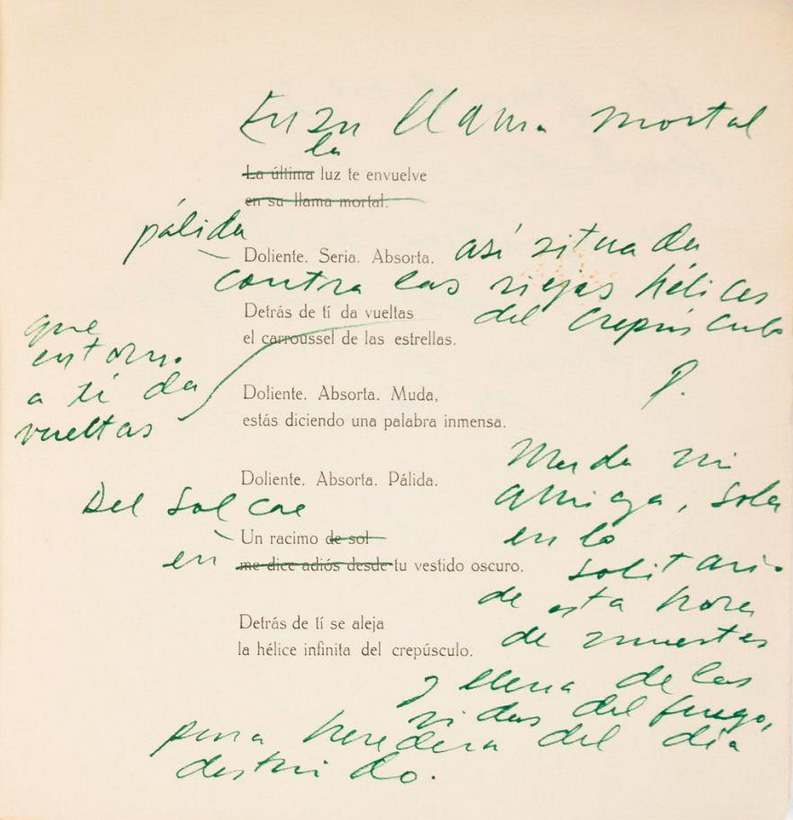 En su llama mortal
la
La última luz te envuelve
en su llama mortal.
pálida
Doliente. Seria. Absorta. así situada
contra las viejas hélices
Detrás de tí da vueltas del crepúsculo
el carroussel de las estrellas.
que
en torno
a ti da
vueltas
Doliente. Absorta. Muda,
estás diciendo una palabra inmensa.
Doliente. Absorta. Pálida.
Muda mi
amiga, sola
en lo
solitario
de esta hora
de muertes
y llena de las
vidas del fuego,
pura heredera del día
destruido.
Del sol cae
Un racimo de sol
en
me dice adiós desde tu vestido oscuro.
Detrás de tí se aleja
la hélice infinita del crepúsculo.